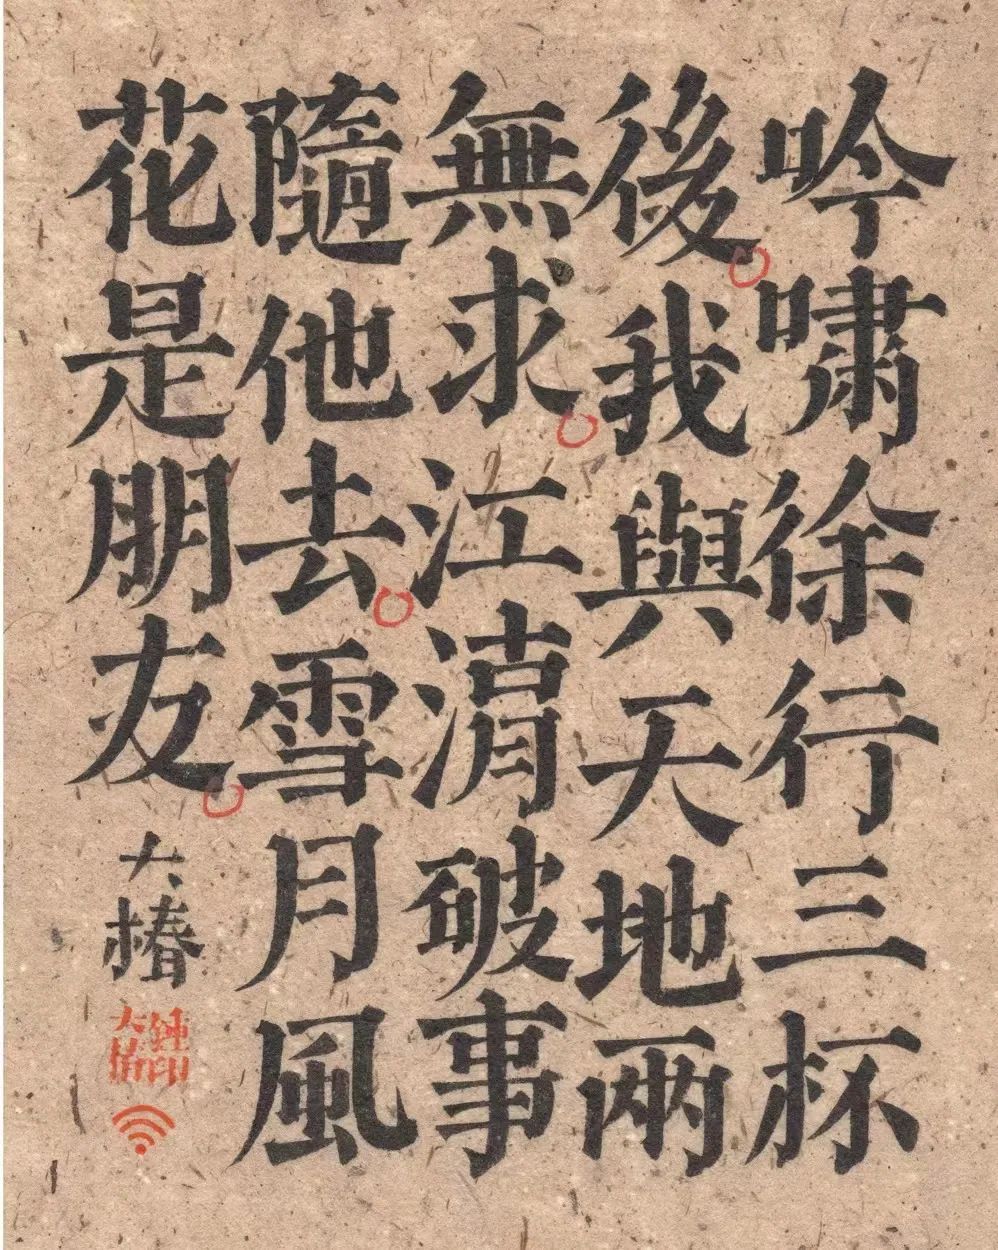 吟嘯徐行三杯
後。我與天地兩
無求。江湖破事
隨他去。雪月風
花是朋友。
大椿